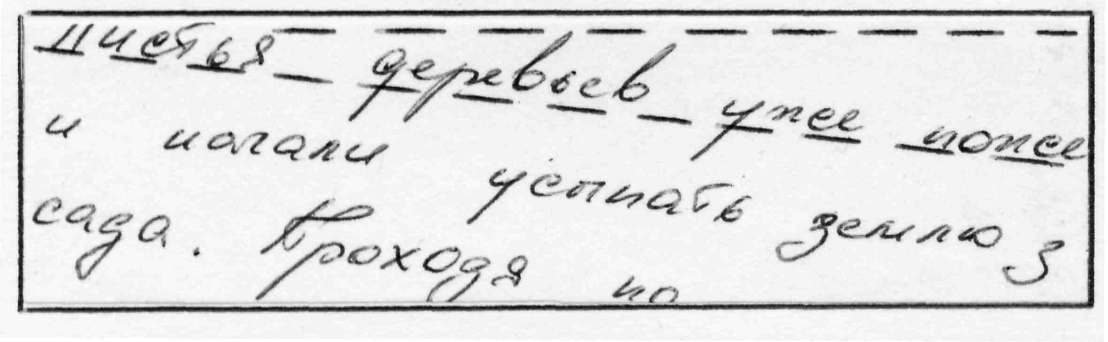 листья деревьев уже поже
и начали усыпать землю з
сада. Проходя по